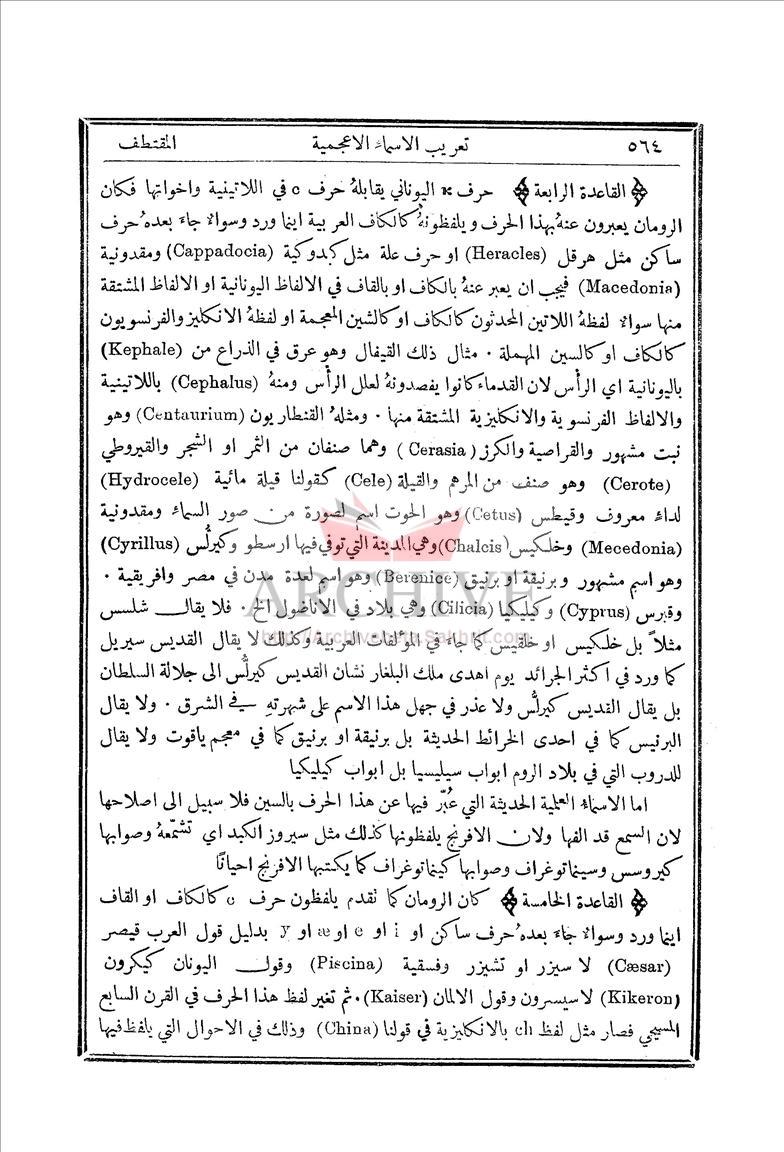 ٥٦٤ تعريب الاسماء الاعجمية المقتطف
﴿ القاعدة الرابعة ﴾ حرف κ اليوناني يقابلهُ حرف c في اللاتينية واخواتها فكان
الرومان يعبرون عنهُ بهذا الحرف ويلفظونهُ كالكاف العربية اينما ورد وسواء جاء بعدهُ حرف
ساكن مثل هرقل (Heracles) او حرف علة مثل كبدوكية (Cappadocia) ومقدونية
(Macedonia) فيجب ان يعبر عنهُ بالكاف او بالقاف في الالفاظ اليونانية او الالفاظ المشتقة
منها سواء لفظهُ اللاتين المحدثون كالكاف او كالشين المعجمة او لفظهُ الانكليز والفرنسويون
كالكاف او كالسين المهملة · مثال ذلك القيفال وهو عرق في الذراع من (Kephale)
باليونانية اي الرأس لان القدماء كانوا يفصدونهُ لعلل الرأس ومنهُ (Cephalus) باللاتينية
والالفاظ الفرنسوية والانكليزية المشتقة منها · ومثلهُ القنطاريون (Centaurium) وهو
نبت مشهور والقراصية والكرز (Cerasia) وهما صنفان من الثمر او الشجر والقيروطي
(Cerote) وهو صنف من المرهم والقيلة (Cele) كقولنا قيلة مائية (Hydrocele)
لداء معروف وقيطس (Cetus) وهو الحوت اسم لصورة من صور السماء ومقدونية
(Mecedonia) وخلكيس (Chalcis) وهي المدينة التي توفي فيها ارسطو وكيرلُّس (Cyrillus)
وهو اسم مشهور وبرنيقة او برنيق (Berenice) وهو اسم لعدة مدن في مصر وافريقية ·
وقبرس (Cyprus) وكيليكيا (Cilicia) وهي بلاد في الاناضول الخ · فلا يقال شلسس
مثلاً بل خلكيس او خلقيس كما جاء في المؤلفات العربية وكذلك لا يقال القديس سيريل
كما ورد في اكثر الجرائد يوم اهدى ملك البلغار نشان القديس كيرلُّس الى جلالة السلطان
بل يقال القديس كيرلُّس ولا عذر في جهل هذا الاسم على شهرتهِ في الشرق · ولا يقال
البرنيس كما في احدى الخرائط الحديثة بل برنيقة او برنيق كما في معجم ياقوت ولا يقال
للدروب التي في بلاد الروم ابواب سيليسيا بل ابواب كيليكيا
اما الاسماء العلمية الحديثة التي عُبّر فيها عن هذا الحرف بالسين فلا سبيل الى اصلاحها
لان السمع قد الفها ولان الافرنج يلفظونها كذلك مثل سيروز الكبد اي تشمّعهُ وصوابها
كيروسس وسينماتوغراف وصوابها كينماتوغراف كما يكتبها الافرنج احيانًا
﴿ القاعدة الخامسة ﴾ كان الرومان كما تقدم يلفظون حرف c كالكاف او القاف
اينما ورد وسواء جاء بعدهُ حرف ساكن او i او e او æ او y بدليل قول العرب قيصر
(Cæsar) لا سيزر او تشيزر وفسقية (Piscina) وقول اليونان كيكرون
(Kikeron) لا سيسرون وقول الالمان (Kaiser) · ثم تغير لفظ هذا الحرف في القرن السابع
المسيحي فصار مثل لفظ ch بالانكليزية في قولنا (China) وذلك في الاحوال التي يلفظ فيها
ARCHIVE
http://Archivebeta.Sakhrit.com